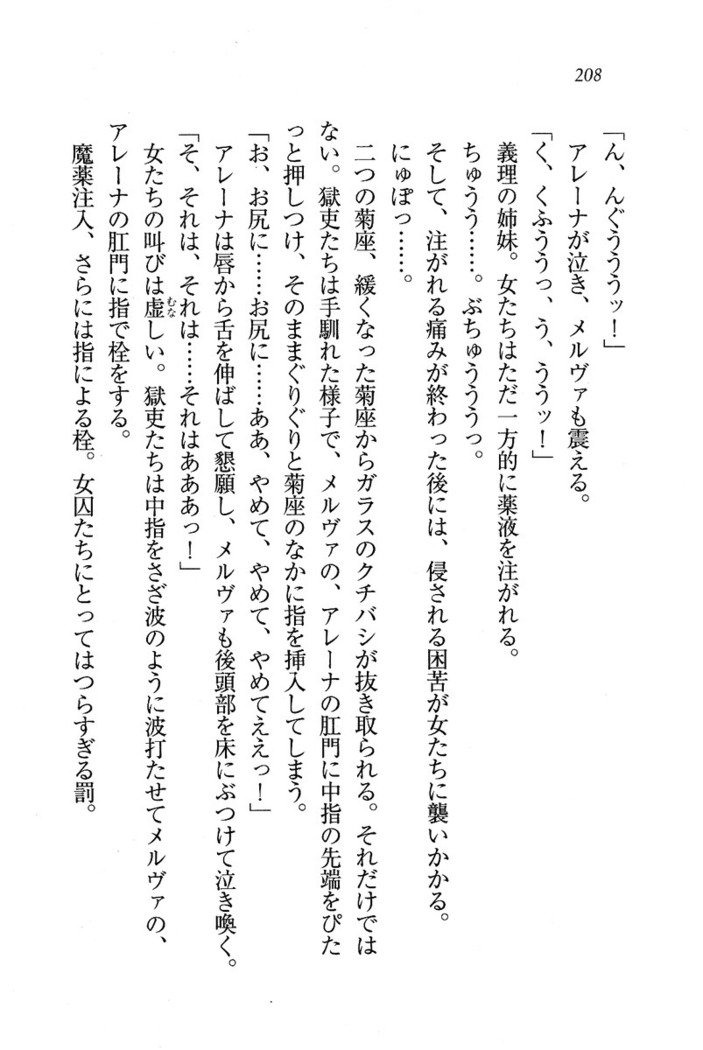 208
「ん、んぐうううッ！」
アレーナが泣き、メルヴァも震える。
「く、くふううっ、う、ううッ！」
義理の姉妹。女たちはただ一方的に薬液を注がれる。
ちゅうう……。ぶちゅうううっ。
そして、注がれる痛みが終わった後には、侵される困苦が女たちに襲いかかる。
にゅぽっ……。
二つの菊座、緩くなった菊座からガラスのクチバシが抜き取られる。それだけでは
ない。獄吏たちは手馴れた様子で、メルヴァの、アレーナの肛門に中指の先端をぴた
っと押しつけ、そのままぐりぐりと菊座のなかに指を挿入してしまう。
「お、お尻に……お尻に……ああ、やめて、やめて、やめてええっ！」
アレーナは唇から舌を伸ばして懇願し、メルヴァも後頭部を床にぶつけて泣き喚く。
「そ、それは、それは……それはあああっ！」
女たちの叫びは虚しい。獄吏たちは中指をさざ波のように波打たせてメルヴァの、
むな
アレーナの肛門に指で栓をする。
魔薬注入、さらには指による栓。女囚たちにとってはつらすぎる罰。